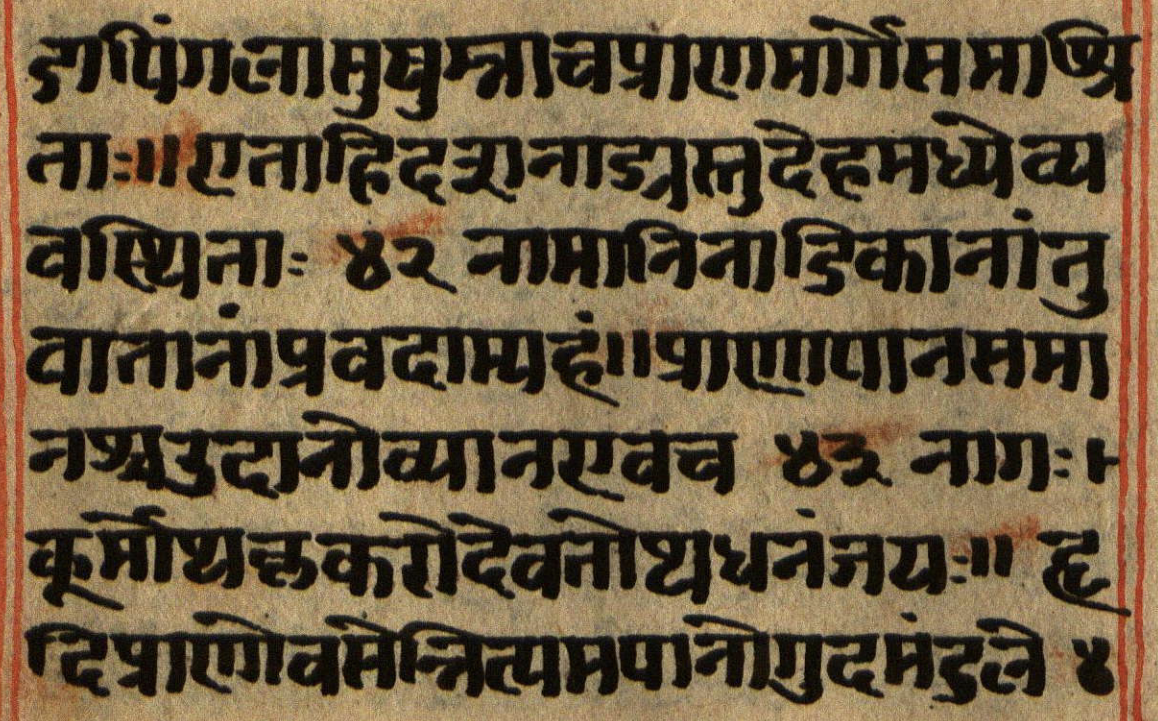 डापिंगलासुषुम्नाचप्राणमार्गेसमाश्रि
ताः॥एताहिदशनाड्यस्तुदेहमध्येव्य
वस्थिताः ४२ नामानिनाडिकानांतु
वातानांप्रवदाम्यहं॥प्राणापानसमा
नश्चउदानोव्यानएवच ४३ नागः।
कूर्मोथकृकरोदेवतोथधनंजयः॥ हृ
दिप्राणोवसेन्नित्यमपानोगुदमंडले ४